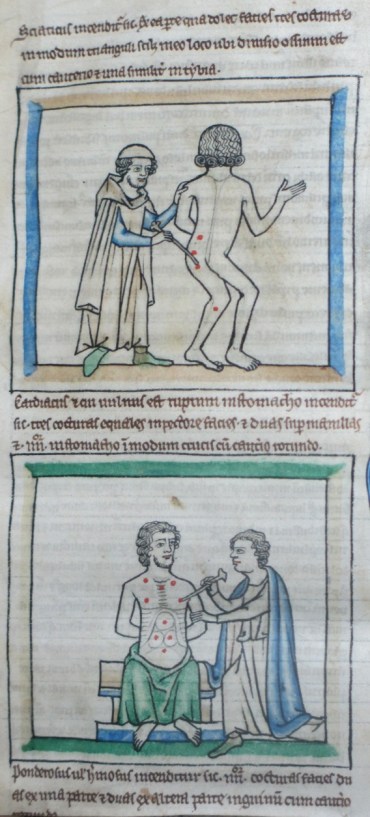 Sciaticus incendit᷑ sic. Ex ea parte qua dolet facies tres cocturas
in modum trianguli scil; in eo loco ubi diuisio ossium est
cum cauterio ⁊ una similit᷑ in tybia.
Cardiacus ⁊ qui uulnus est ruptum in stomacho incendit᷑
sic. tres cocturas equales in pectore facies ⁊ duas sup mamillas
⁊ .iiii. in stomacho ī modum crucis cū caut'io rotundo.
Ponderosus ul' h'niosus incenditur sic. iiii. cocturas facies du
as ex una parte ⁊ duas ex altera parte inguinū cum caut'io
rotundo